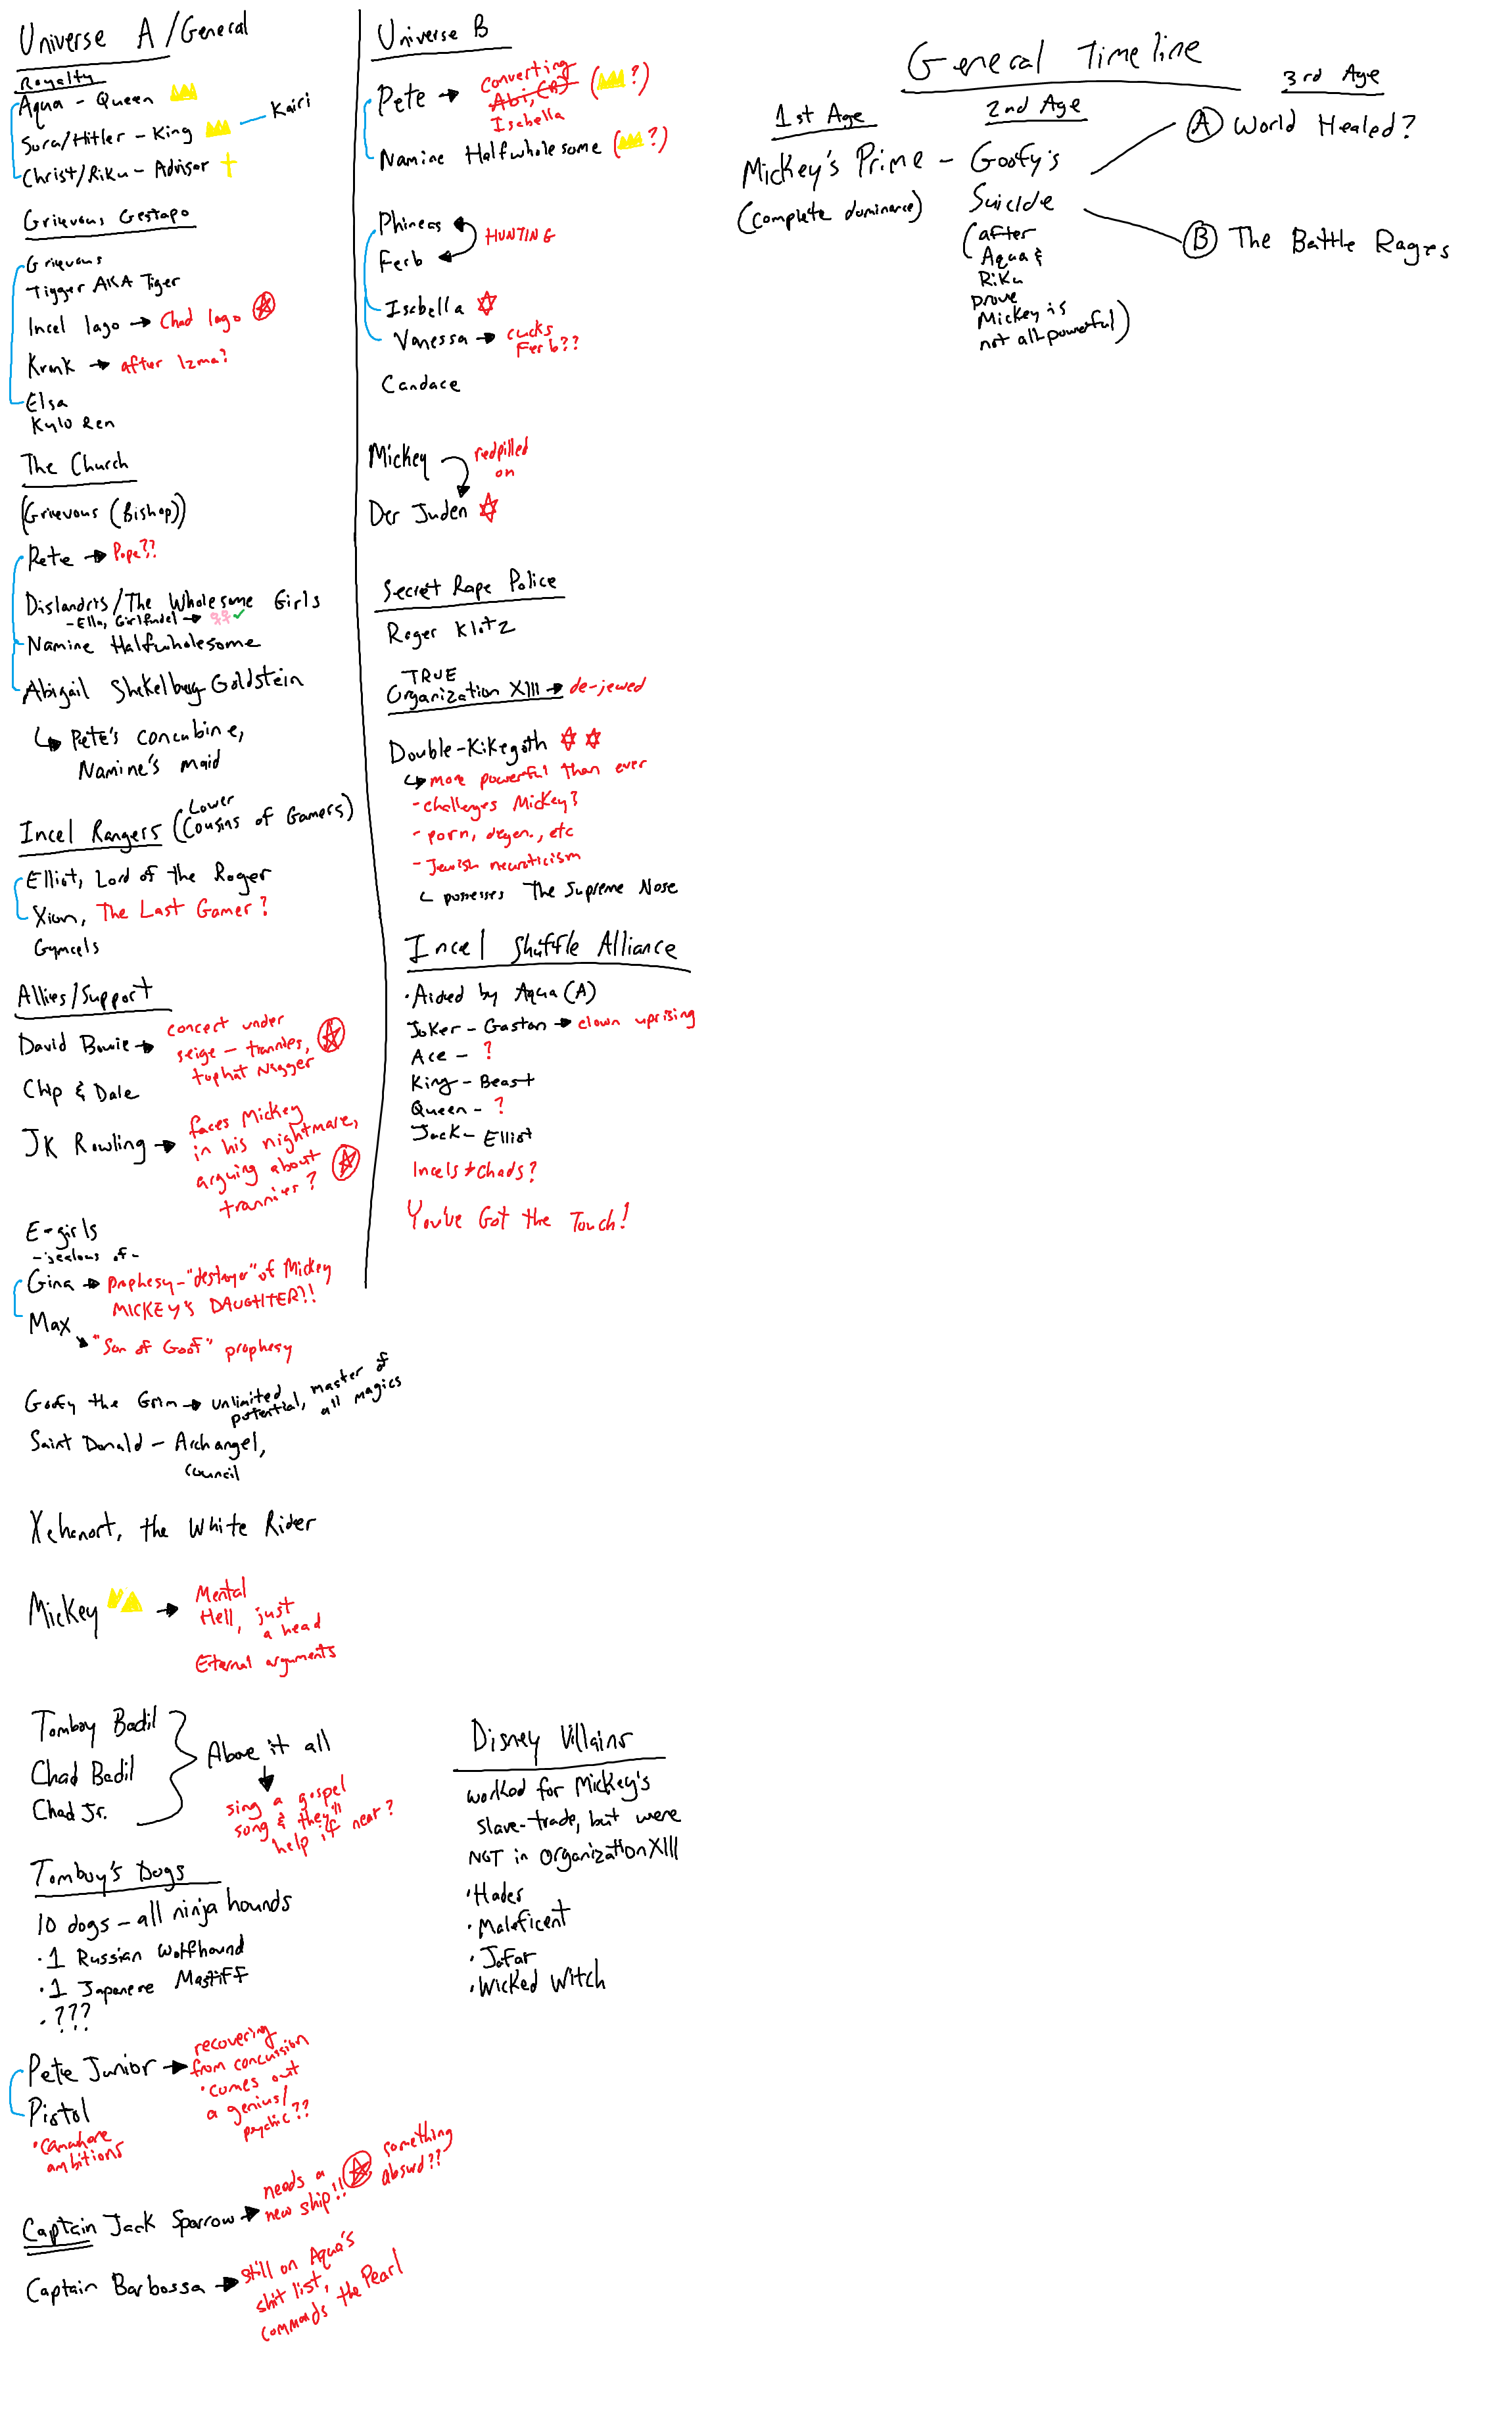 Universe A/General
Royalty
Aqua - Queen
Sora/Hitler - King
Kairi
Christ/Riku - Advisor
Grievous Gestapo
Grievous
Tigger AKA Tiger
Incel Iago → Chad Iago
Kronk → after Izma?
Elsa
Kylo Ren
The Church
(Grievous (Bishop))
Pete → Pope??
Dislanders/The Wholesome Girls
- Ella, Girlfriendel → ♀♀✓
Namine Halfwholesome
Abigail Shekelburg-Goldstein
↳ Pete's concubine,
Namine's maid
Incel Rangers (Lower Cousins of Gamers)
Elliot, Lord of the Roger
Xion, The Last Gamer?
Gymcels
Allies/Support
David Bowie → concert under
seige - trannies,
tophat nigger
Chip & Dale
JK Rowling → faces Mickey
in his nightmare,
arguing about
trannies?
E-girls
- jealous of -
Gina → prophesy - "destroyer" of Mickey
MICKEY'S DAUGHTER?!
Max
"Son of Goof" prophesy
Goofy the Grim → unlimited potential, master of all magics
Saint Donald - Archangel,
Council
Xehanort, the White Rider
Mickey → Mental
Hell, just
a head
Eternal arguments
Tomboy Badil
Chad Badil
Chad Jr.
Above it all
sing a gospel
song & they'll
help if near?
Tomboy's Dogs
10 dogs - all ninja hounds
· 1 Russian Wolfhound
· 1 Japanese Mastiff
· ???
Pete Junior → recovering
from concussion
· comes out
a genius/
psychic??
Pistol
· Camwhore
ambitions
Captain Jack Sparrow → needs a
new ship!!
something
absurd??
Captain Barbossa → still on Aqua's
shit list,
commands the Pearl
Universe B
Pete → converting
Abi, (B)
Isabella
(?)
Namine Halfwholesome (?)
Phineas
HUNTING
Ferb
Isabella
Vanessa → cucks
Ferb??
Candace
Mickey
redpilled
on
Der Juden
Secret Rape Police
Roger Klotz
TRUE
Organization XIII → de-jewed
Double-Kikegoth
↳ more powerful than ever
- challenges Mickey?
- porn, degen., etc
- Jewish neuroticism
↳ possesses The Supreme Nose
Incel Shuffle Alliance
· Aided by Aqua (A)
Joker - Gaston → clown uprising
Ace - ?
King - Beast
Queen - ?
Jack - Elliot
Incels + chads?
You've Got the Touch!
Disney Villains
worked for Mickey's
slave-trade, but were
NOT in Organization XIII
· Hades
· Maleficent
· Jafar
· Wicked Witch
General Timeline
1st Age
2nd Age
3rd Age
Mickey's Prime - Goofy's
(complete dominance)
Suicide
(after
Aqua &
Riku
prove
Mickey is
not all-powerful)
A World Healed?
B The Battle Rages